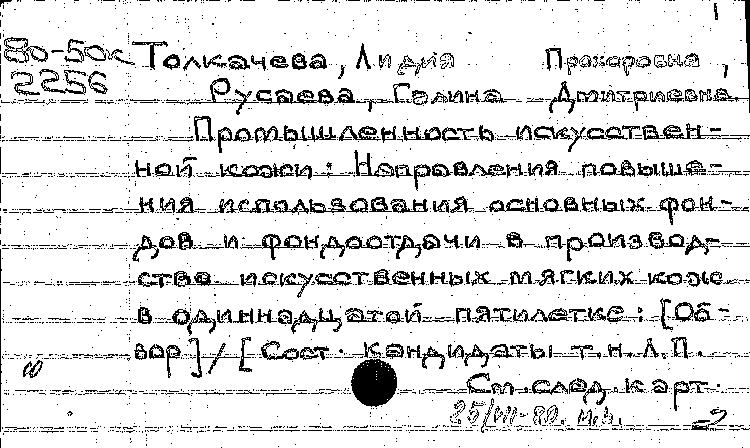 1
80-50к Толкачева, Лидия Прохоровна,
2256 Русаева, Галина Дмитриевна.
Промышленность искусствен-
ной кожи: Направления повыше-
ния использования основных фон-
дов и фондоотдачи в производ-
стве искусственных мягких кож
в одиннадцатой пятилетке: [Об-
зор] / [Сост. кандидаты т.н. Л.П.
См. след. карт.
25/VII-80.